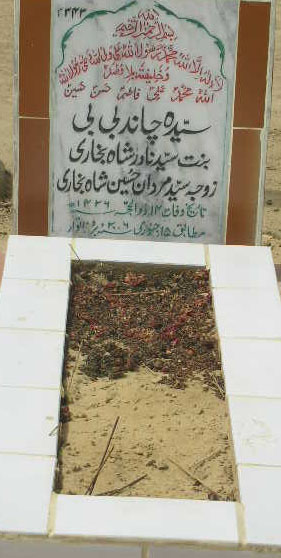 ۳۴۳
بسم الله الرحمن الرحیم
لا اله الا الله محمد رسول الله علی ولی الله
و خلیفته بلا فصل
الله محمد علی فاطمه حسن حسین
سیدہ چاند بی بی
بنت سید نادر شاہ بخاری
زوجہ سید مردان حسین شاہ بخاری
تاریخ وفات ۱۴ ذوالحجہ ۱۴۲۶ھ
مطابق ۱۵ جنوری ۲۰۰۶ بروز اتوار